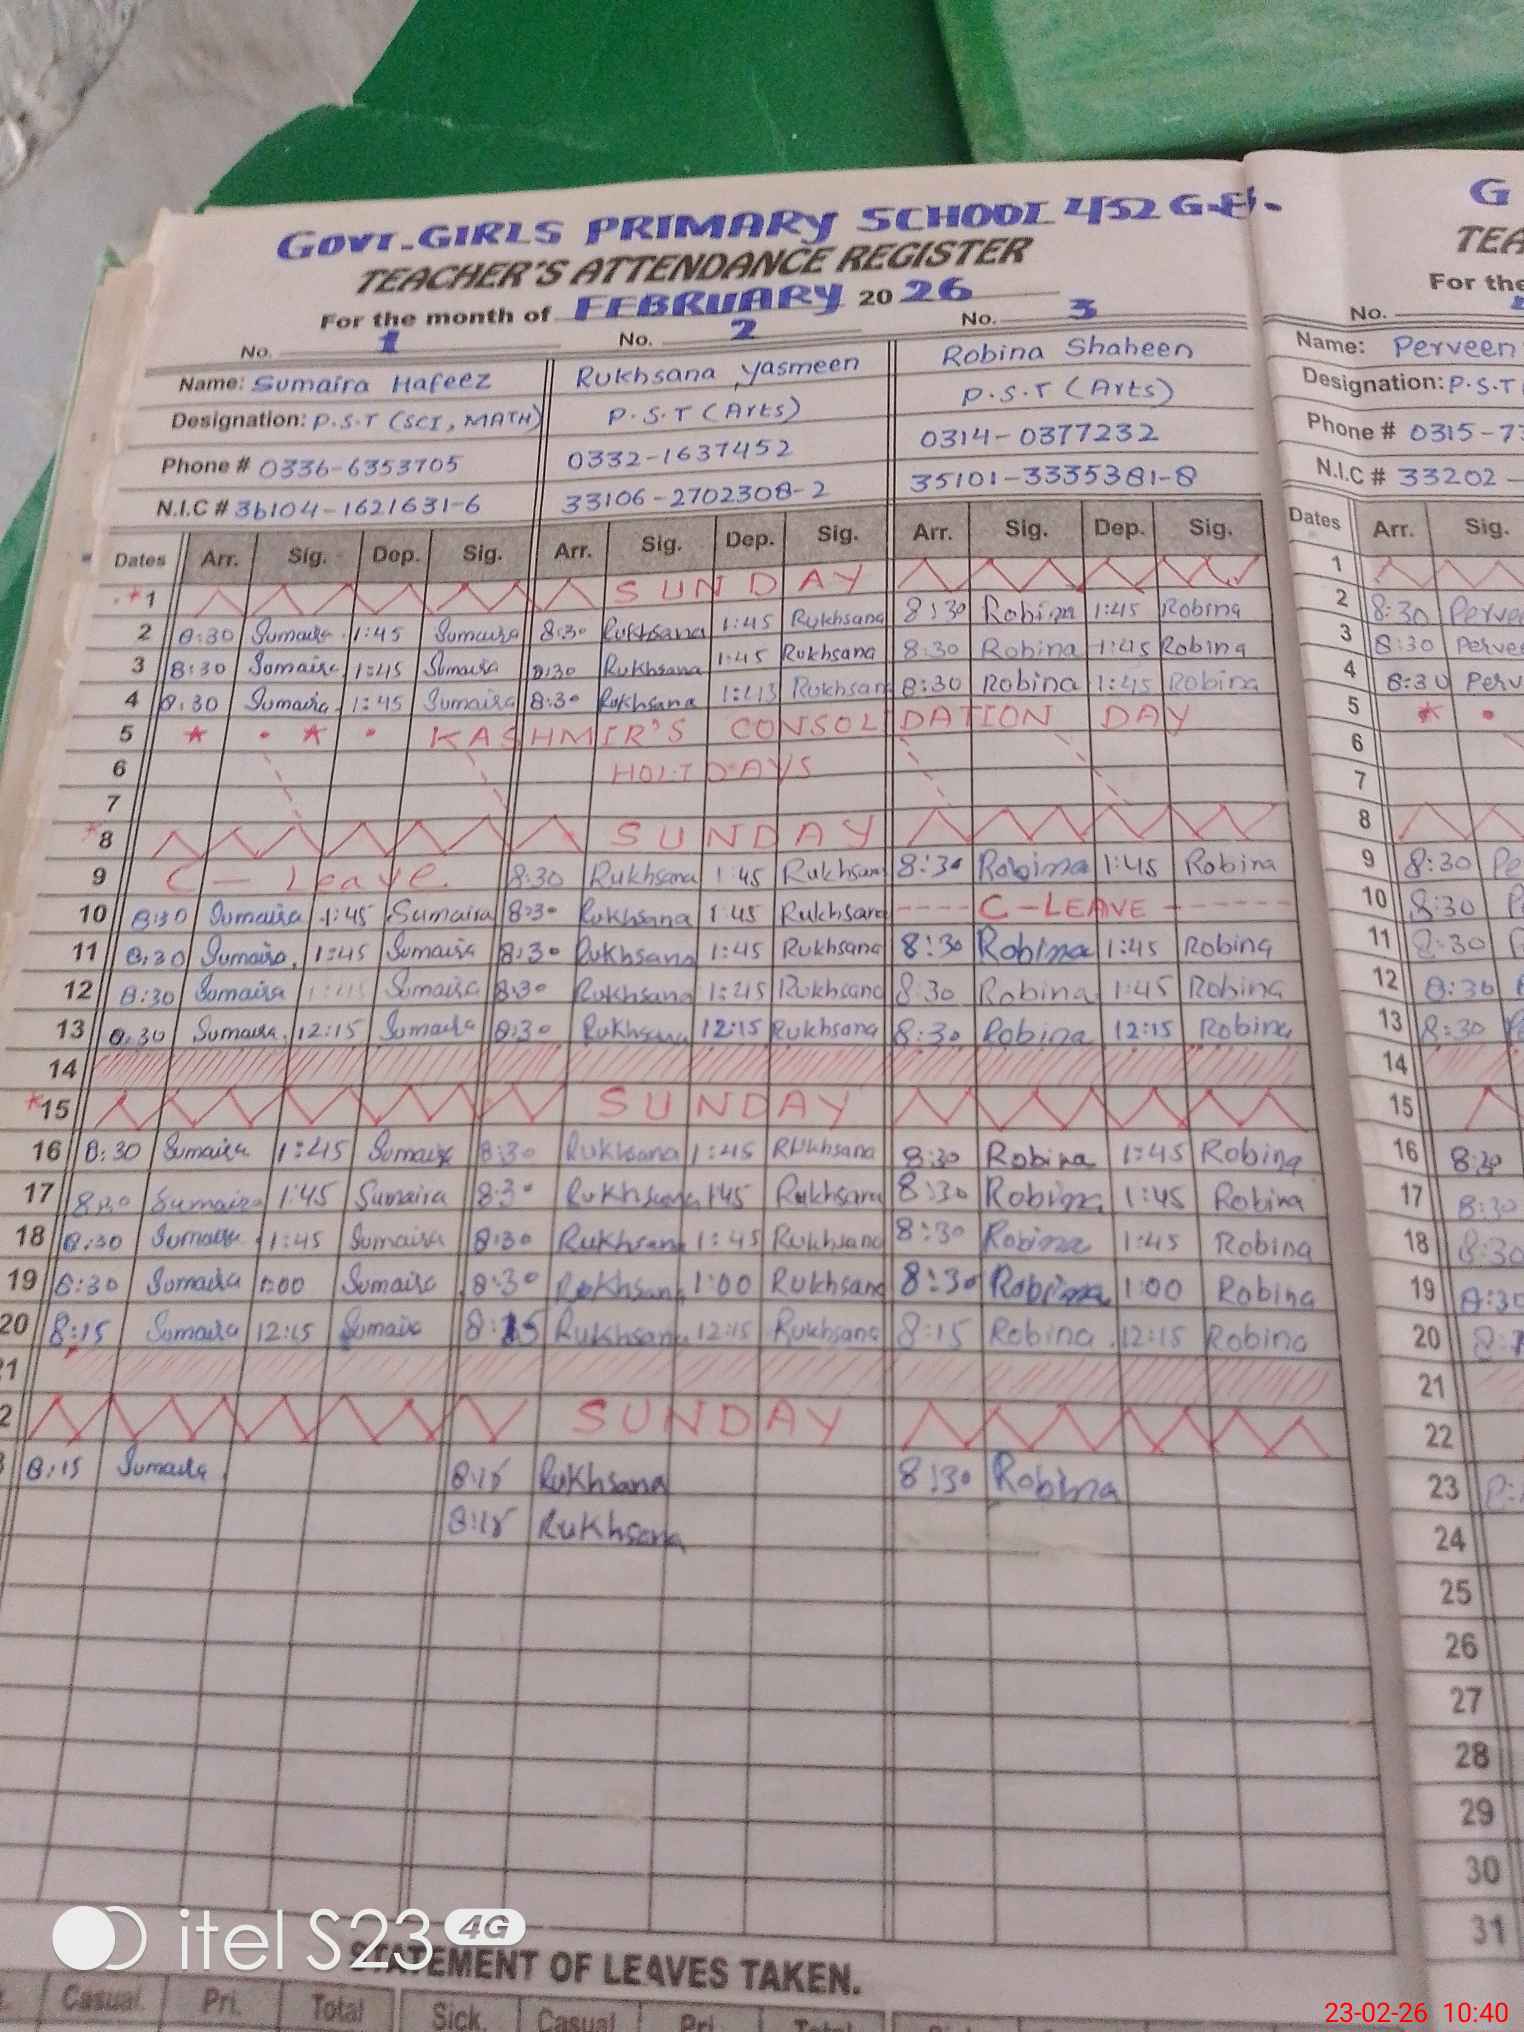 GOVT-GIRLS PRIMARY SCHOOL 452 G.B.
TEACHER'S ATTENDANCE REGISTER
For the month of FEBRUARY 2026
No. 1 No. 2 No. 3
Name: Sumaira Hafeez Rukhsana Yasmeen Robina Shaheen
Designation: P.S.T (SCI, MATH) P.S.T (Arts) P.S.T (Arts)
Phone # 0336-6353705 0332-1637452 0314-0377232
N.I.C # 36104-1621631-6 33106-2702308-2 35101-3335381-8
Dates Arr. Sig. Dep. Sig. Arr. Sig. Dep. Sig. Arr. Sig. Dep. Sig.
*1 SUNDAY
2 8:30 Sumaira 1:45 Sumaira 8:30 Rukhsana 1:45 Rukhsana 8:30 Robina 1:45 Robina
3 8:30 Sumaira 1:45 Sumaira 8:30 Rukhsana 1:45 Rukhsana 8:30 Robina 1:45 Robina
4 8:30 Sumaira 1:45 Sumaira 8:30 Rukhsana 1:45 Rukhsana 8:30 Robina 1:45 Robina
5 KASHMIR'S CONSOLDATION DAY
6 HOLIDAYS
7
*8 SUNDAY
9 C-Leave 8:30 Rukhsana 1:45 Rukhsana 8:30 Robina 1:45 Robina
10 8:30 Sumaira 1:45 Sumaira 8:30 Rukhsana 1:45 Rukhsana C-LEAVE
11 8:30 Sumaira 1:45 Sumaira 8:30 Rukhsana 1:45 Rukhsana 8:30 Robina 1:45 Robina
12 8:30 Sumaira 1:45 Sumaira 8:30 Rukhsana 1:45 Rukhsana 8:30 Robina 1:45 Robina
13 8:30 Sumaira 12:15 Sumaira 8:30 Rukhsana 12:15 Rukhsana 8:30 Robina 12:15 Robina
14
*15 SUNDAY
16 8:30 Sumaira 1:45 Sumaira 8:30 Rukhsana 1:45 Rukhsana 8:30 Robina 1:45 Robina
17 8:30 Sumaira 1:45 Sumaira 8:30 Rukhsana 1:45 Rukhsana 8:30 Robina 1:45 Robina
18 8:30 Sumaira 1:45 Sumaira 8:30 Rukhsana 1:45 Rukhsana 8:30 Robina 1:45 Robina
19 8:30 Sumaira 1:00 Sumaira 8:30 Rukhsana 1:00 Rukhsana 8:30 Robina 1:00 Robina
20 8:15 Sumaira 12:15 Sumaira 8:15 Rukhsana 12:15 Rukhsana 8:15 Robina 12:15 Robina
1
2 SUNDAY
8:15 Sumaira 8:15 Rukhsana 8:30 Robina
8:15 Rukhsana
STATEMENT OF LEAVES TAKEN.
Casual. Pri. Total Sick. Casual Pri. Total
G
TEA
For the
No.
Name: Perveen
Designation: P.S.T
Phone # 0315-7
N.I.C # 33202-
Dates Arr. Sig.
1
2 8:30 Perve
3 8:30 Perve
4 8:30 Perv
5
6
7
8
9 8:30 Pe
10 8:30
11 8:30
12 8:30
13 8:30
14
15
16 8:30
17 8:30
18 8:30
19 8:30
20
21
22
23
24
25
26
27
28
29
30
31
itel S23 4G
23-02-26 10:40